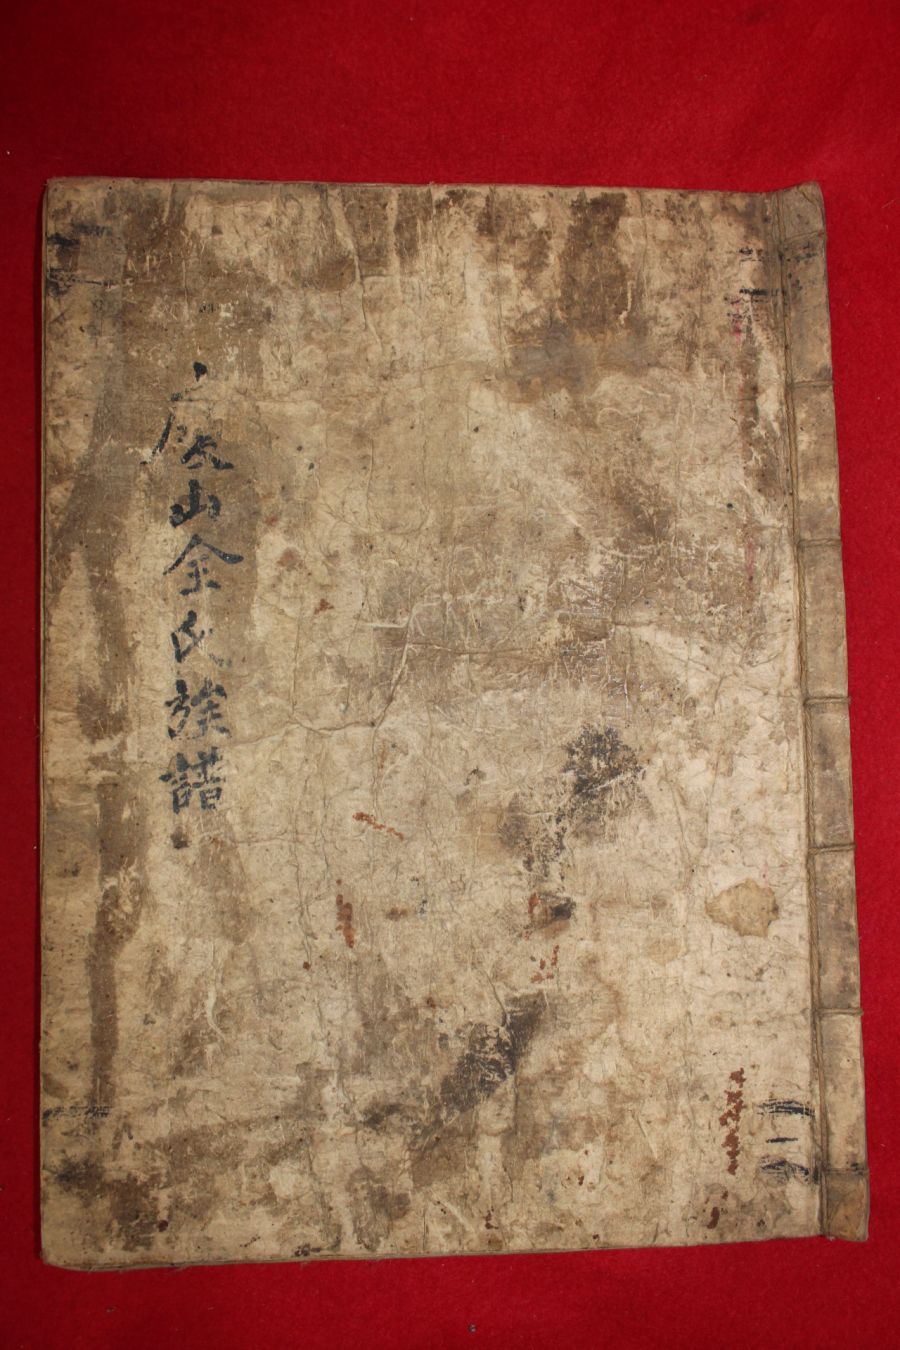 慶山金氏族譜